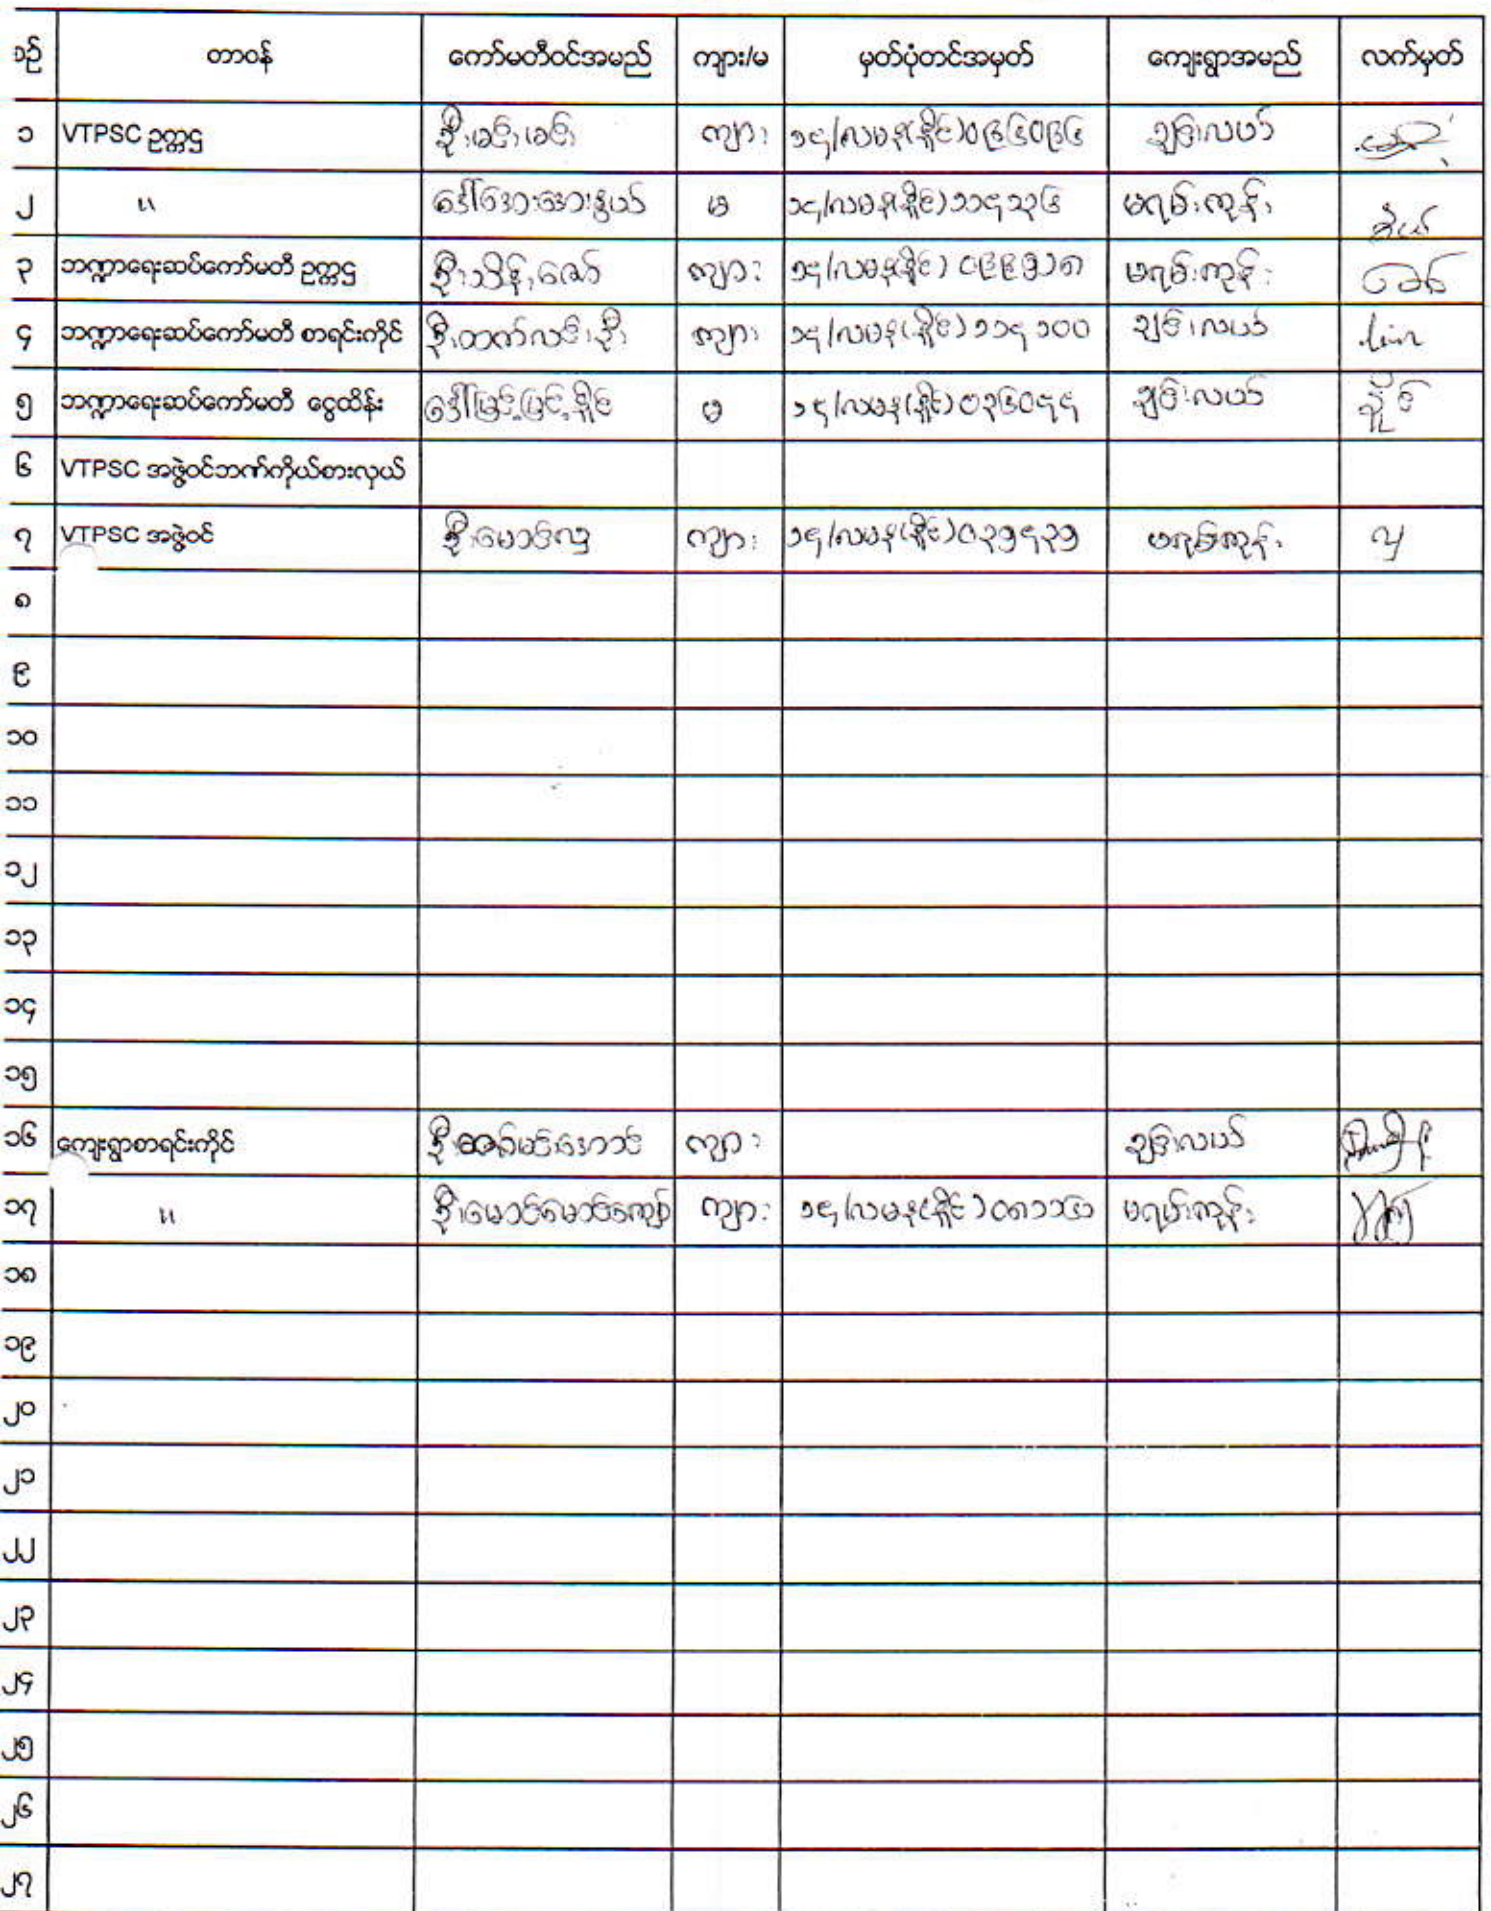 စဉ် တာဝန် ကော်မတီဝင်အမည် ကျား/မ မှတ်ပုံတင်အမှတ် ကျေးရွာအမည် လက်မှတ်
၁ VTPSC ဥက္ကဌ ဦးခင်းခင်း ကျား ၁၄/လမန(နိုင်)၀၉၆၀၉၆ ချင်းလယ်
၂ " ဒေါ်အေးအေးနွယ် မ ၁၄/လမန(နိုင်)၁၁၄၁၃၆ မရမ်းကုန်း
၃ ဘဏ္ဍာရေးဆပ်ကော်မတီ ဥက္ကဌ ဦးသိန်းဇော် ကျား ၁၄/လမန(နိုင်) ၀၉၉၅၁၈ မရမ်းကုန်း
၄ ဘဏ္ဍာရေးဆပ်ကော်မတီ စာရင်းကိုင် ဦးထက်လင်းဦး ကျား ၁၄/လမန(နိုင်)၁၁၄၁၀၀ ချင်းလယ် lin
၅ ဘဏ္ဍာရေးဆပ်ကော်မတီ ငွေထိန်း ဒေါ်မြင့်မြင့်ခိုင် မ ၁၄/လမန(နိုင်)၀၃၆၀၄၄ ချင်းလယ်
၆ VTPSC အဖွဲ့ဝင်ဘဏ်ကိုယ်စားလှယ်
၇ VTPSC အဖွဲ့ဝင် ဦးမောင်လှ ကျား ၁၄/လမန(နိုင်)၀၃၅၄၃၅ မရမ်းကုန်း လှ
၈
၉
၁၀
၁၁
၁၂
၁၃
၁၄
၁၅
၁၆ ကျေးရွာစာရင်းကိုင် ကျား ချင်းလယ်
၁၇ " ဦးမောင်မောင်ကျော် ကျား ၁၄/လမန(နိုင်) မရမ်းကုန်း
၁၈
၁၉
၂၀
၂၁
၂၂
၂၃
၂၄
၂၅
၂၆
၂၇